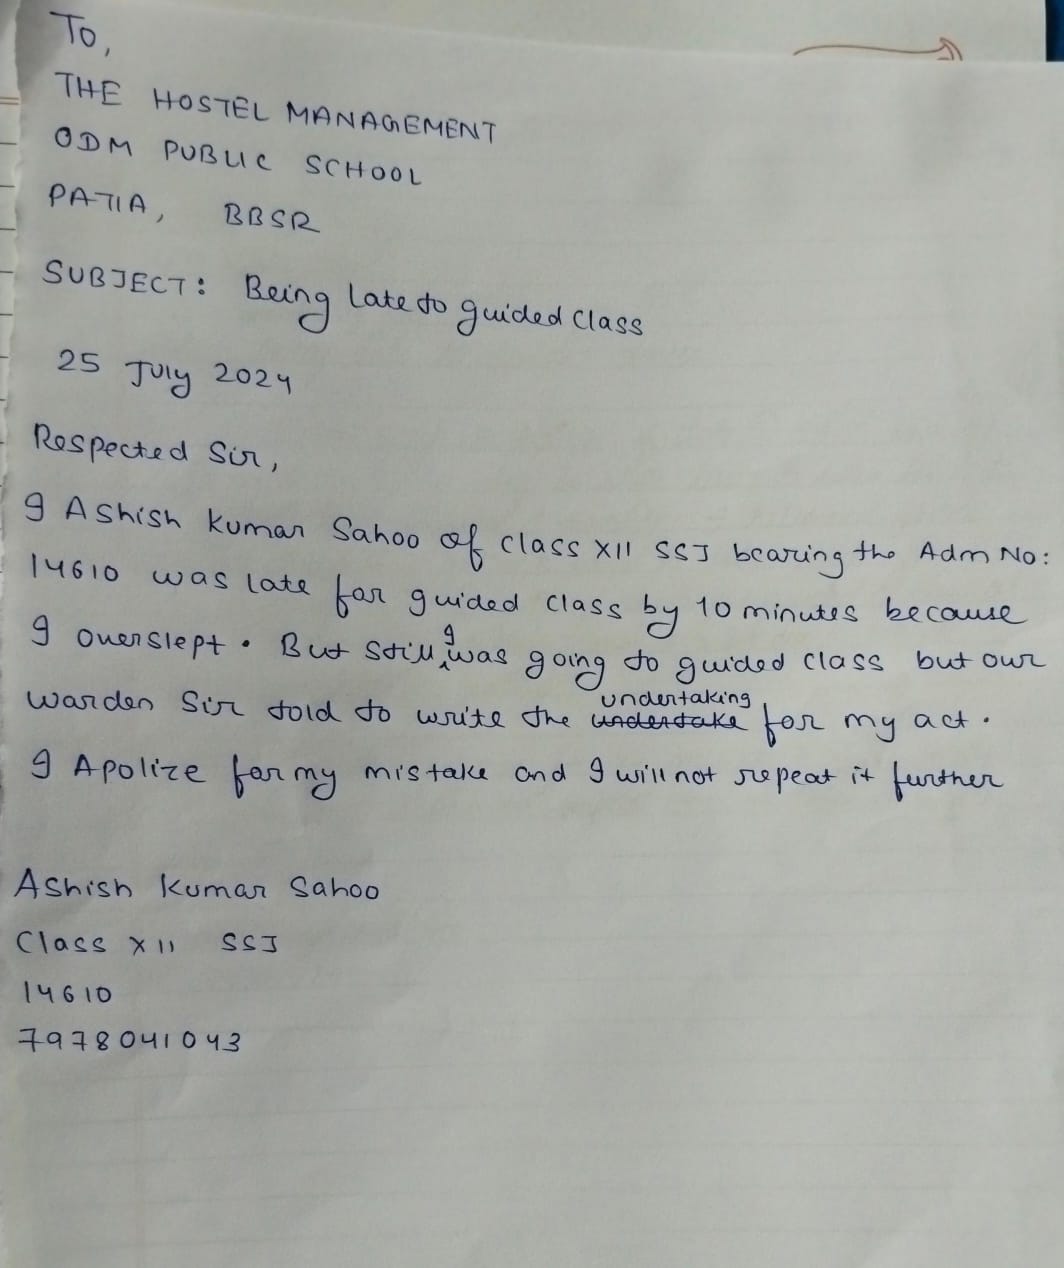 To,
THE HOSTEL MANAGEMENT
ODM PUBLIC SCHOOL
PATIA, BBSR
SUBJECT: Being late to guided class
25 July 2024
Respected Sir,
I Ashish Kumar Sahoo of class XII SSJ bearing the Adm No:
14610 was late for guided class by 10 minutes because
I overslept. But still I was going to guided class but our
warden Sir told to write the undertake undertaking for my act.
I Apolize for my mistake and I will not repeat it further
Ashish Kumar Sahoo
Class XII SSJ
14610
7978041043